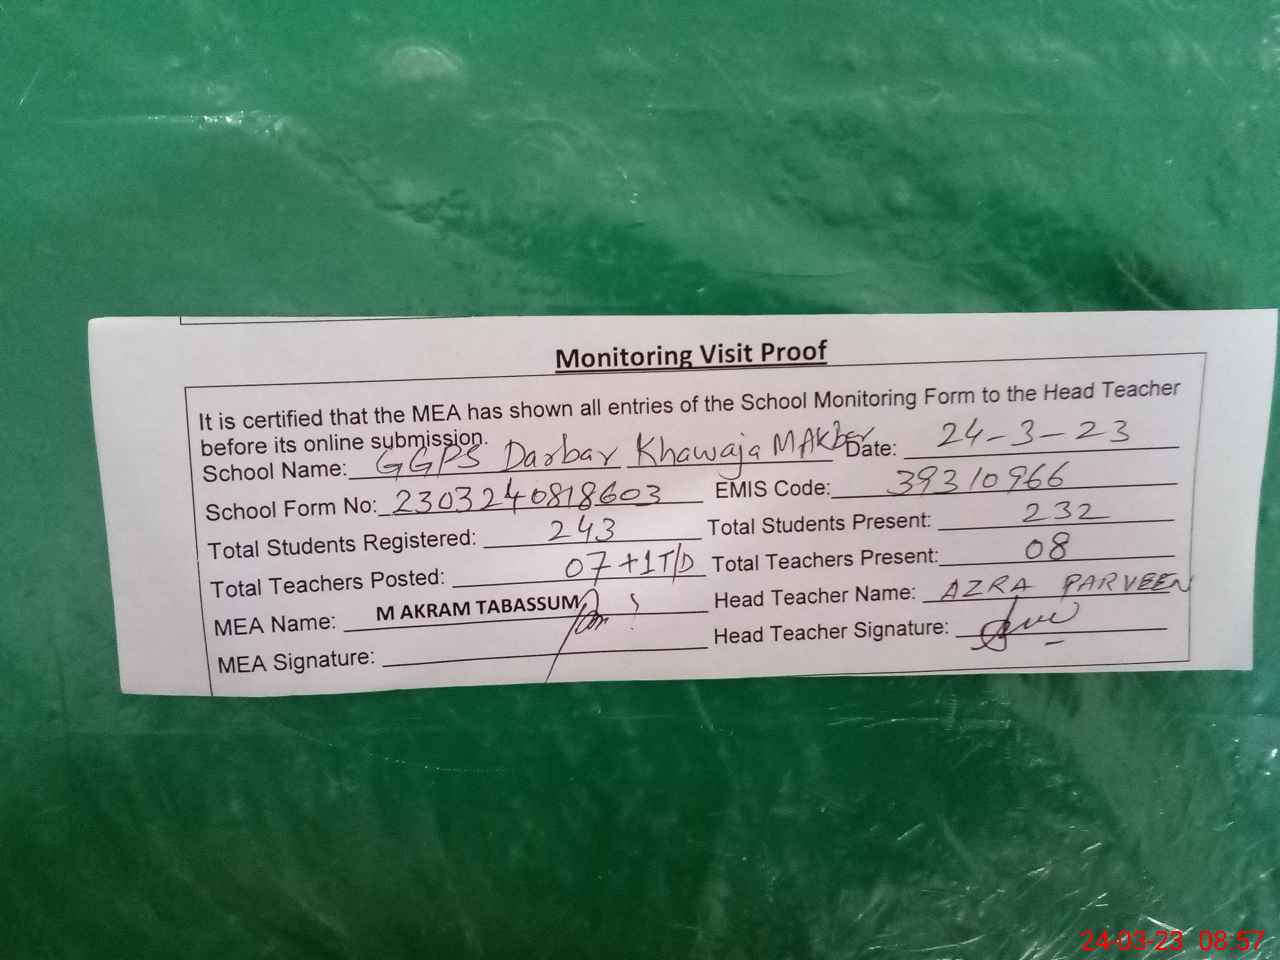 Monitoring Visit Proof
It is certified that the MEA has shown all entries of the School Monitoring Form to the Head Teacher
before its online submission.
School Name: GGPS Darbar Khawaja M Akber Date: 24-3-23
School Form No: 2303240818603 EMIS Code: 39310966
Total Students Registered: 243 Total Students Present: 232
Total Teachers Posted: 07+1T/D Total Teachers Present: 08
MEA Name: M AKRAM TABASSUM Head Teacher Name: AZRA PARVEEN
MEA Signature: Head Teacher Signature:
24-03-23 08:57